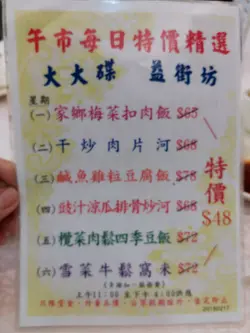 午市每日特價精選
大大碟 益街坊
星期
(一) 家鄉梅菜扣肉飯 $65
(二) 干炒肉片河 $68
(三) 鹹魚雞粒豆腐飯 $78
(四) 豉汁涼瓜排骨炒河 $68
(五) 欖菜肉鬆四季豆飯 $72
(六) 雪菜牛鬆窩米 $72
特價
$48
上午11:00 至下午4:00供應